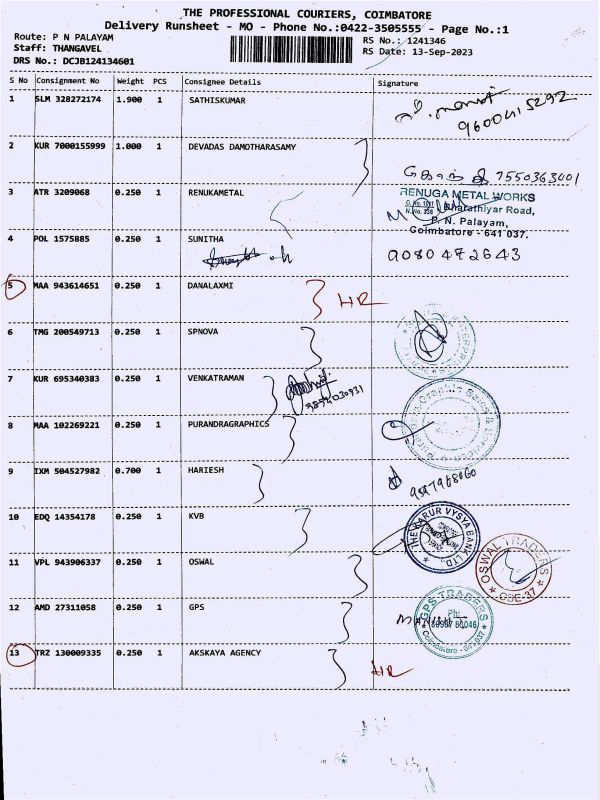 THE PROFESSIONAL COURIERS, COIMBATORE
Delivery Runsheet - MO - Phone No.:0422-3505555 - Page No.:1
Route: P N PALAYAM
Staff: THANGAVEL
DRS No.: DCJB124134601
RS No.: 1241346
RS Date: 13-Sep-2023
S No Consignment No Weight PCS Consignee Details Signature
1 SLM 328272174 1.900 1 SATHISKUMAR
9600415292
2 KUR 7000155999 1.000 1 DEVADAS DAMOTHARASAMY
7550363401
3 ATR 3209068 0.250 1 RENUKAMETAL
RENUGA METAL WORKS
Bharathiyar Road,
P. N. Palayam,
Coimbatore - 641 037.
4 POL 1575885 0.250 1 SUNITHA
9080472643
5 MAA 943614651 0.250 1 DANALAXMI HR
6 TMG 200549713 0.250 1 SPNOVA
7 KUR 695340383 0.250 1 VENKATRAMAN
9894030931
8 MAA 102269221 0.250 1 PURANDRAGRAPHICS
9 IXM 504527982 0.700 1 HARIESH
10 EDQ 14354178 0.250 1 KVB
THE KARUR VYSYA BANK LTD.
11 VPL 943906337 0.250 1 OSWAL
OSWAL TRADERS
CBE-37
12 AMD 27311058 0.250 1 GPS
GPS TRADERS
Ph:
Coimbatore - 641 037
13 TRZ 130009335 0.250 1 AKSKAYA AGENCY HR